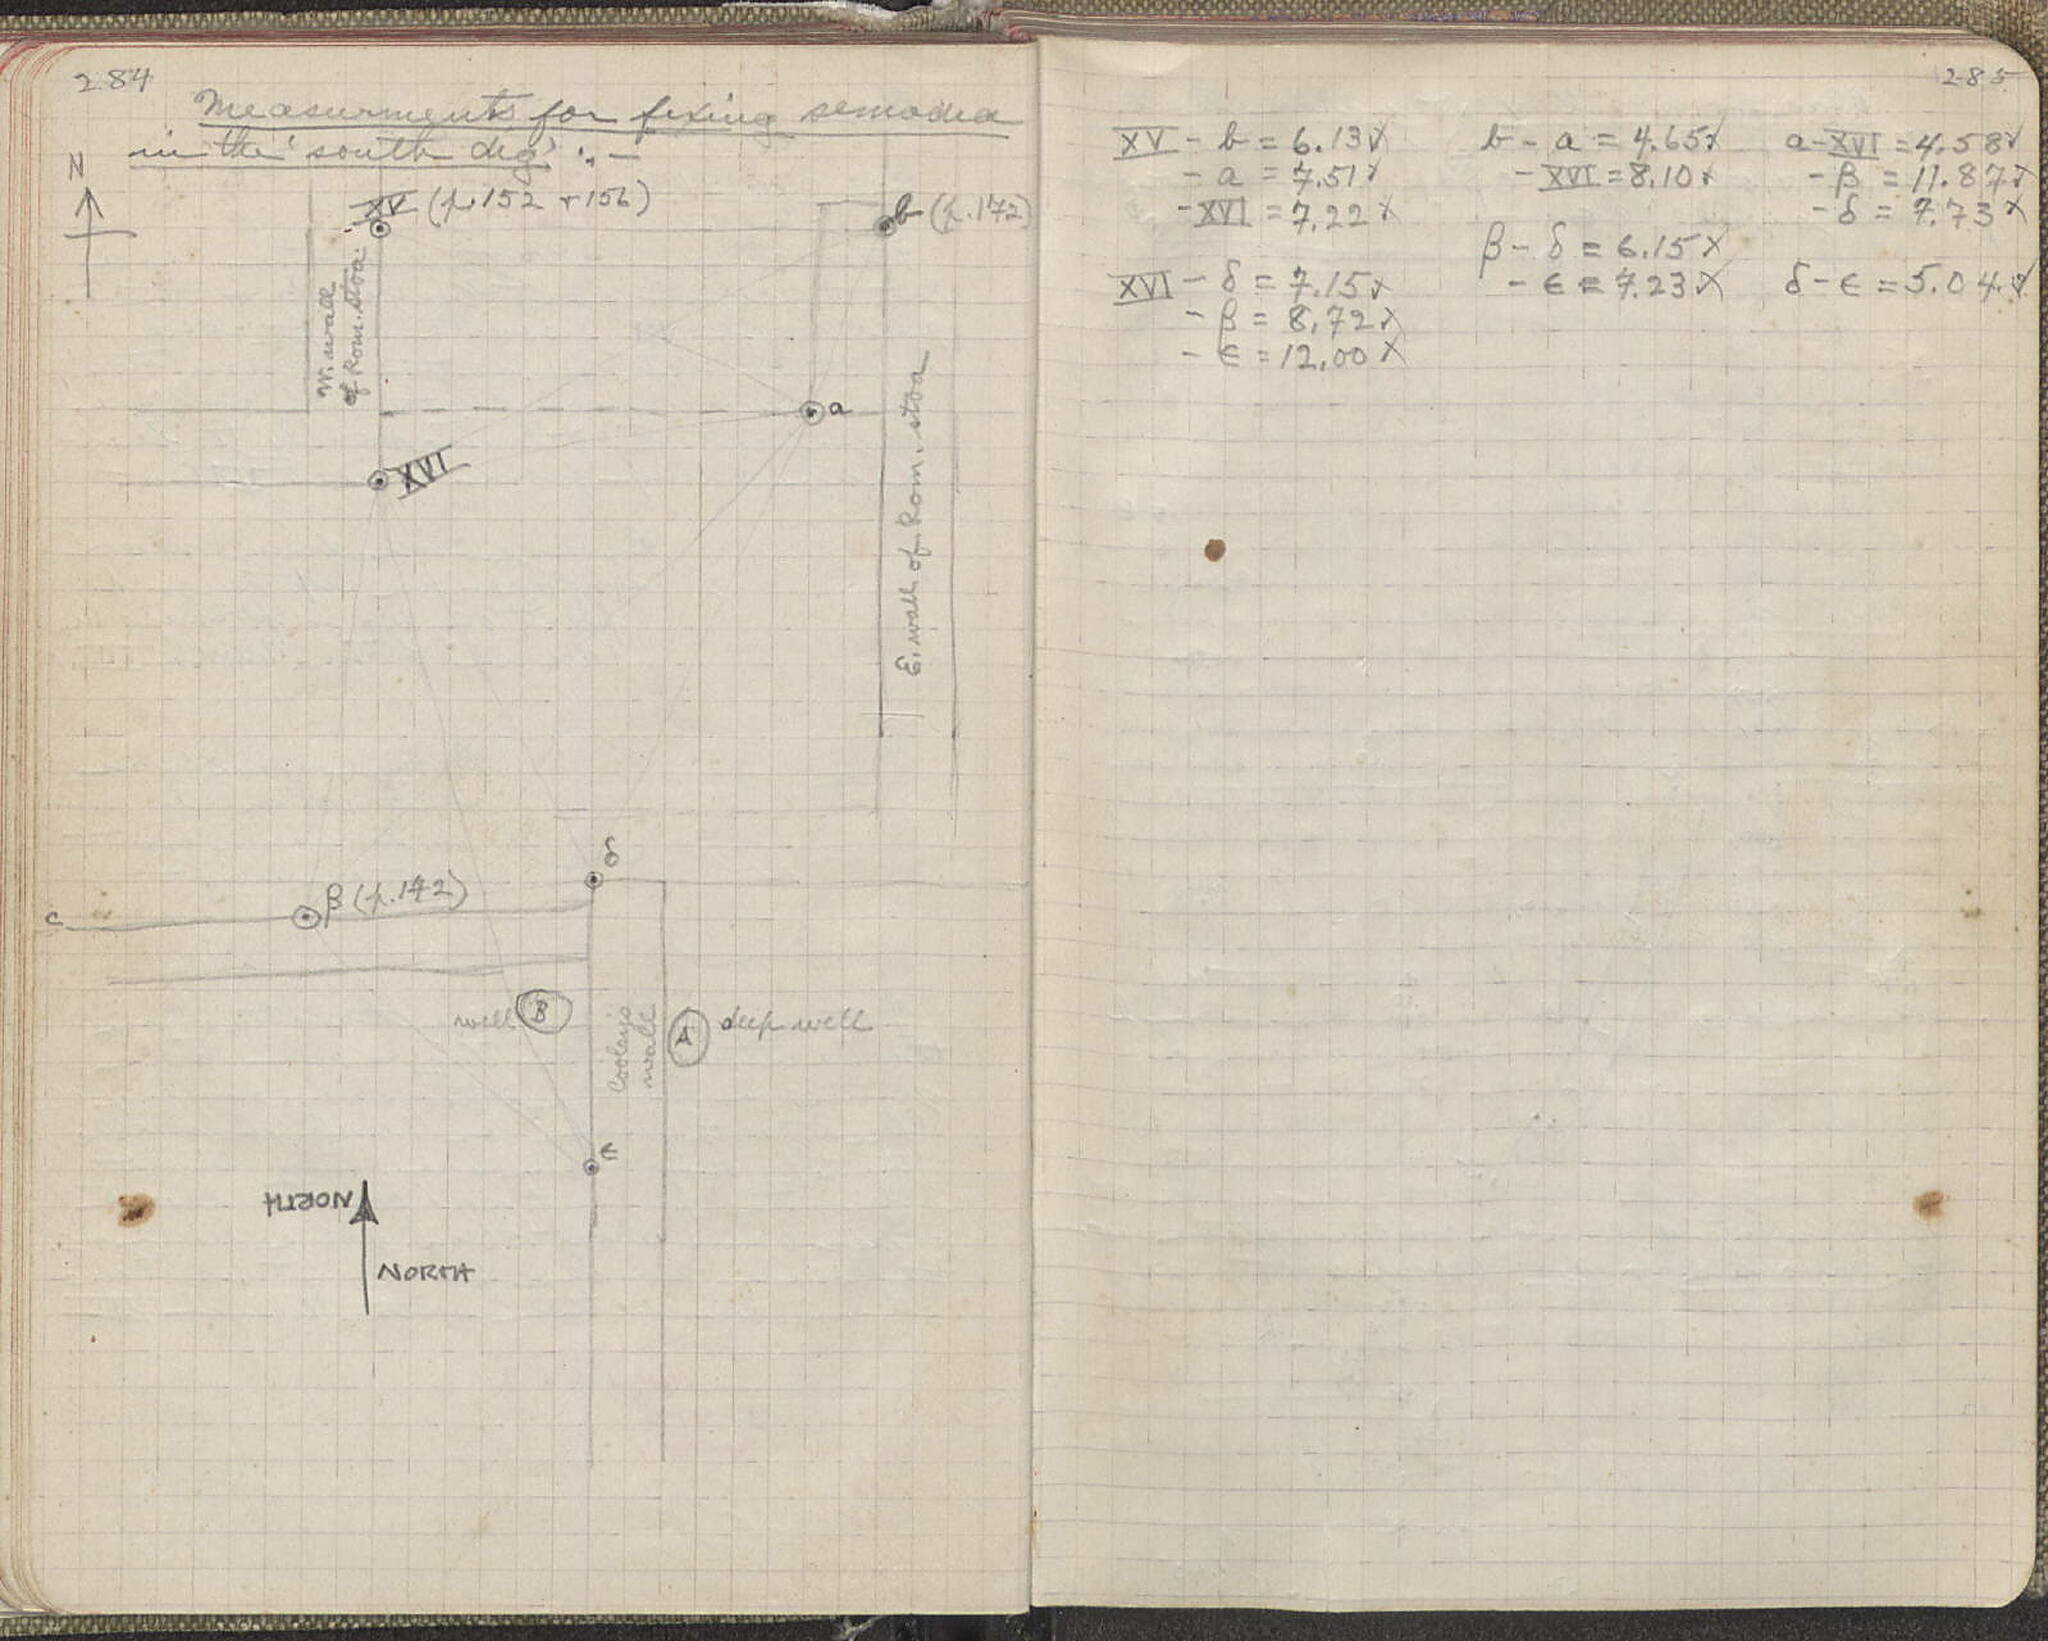 284
Measurments for fixing semadia
in the 'south dig' :—
N
XV (p. 152 + 156)
b (p. 172)
W. wall
of Rom. stoa
a
XVI
E. wall of Rom. stoa
δ
c
β (p. 142)
well B
Cooley's
wall
A deep well
ε
NORTH
NORTH
285
XV - b = 6.13 x
b - a = 4.65 x
a - XVI = 4.58 x
- a = 7.51 x
- XVI = 8.10 x
- β = 11.87 x
- XVI = 7.22 x
- δ = 7.73 x
β - δ = 6.15 x
XVI - δ = 7.15 x
- ε = 7.23 x
δ - ε = 5.04 x
- β = 8.72 x
- ε = 12.00 x